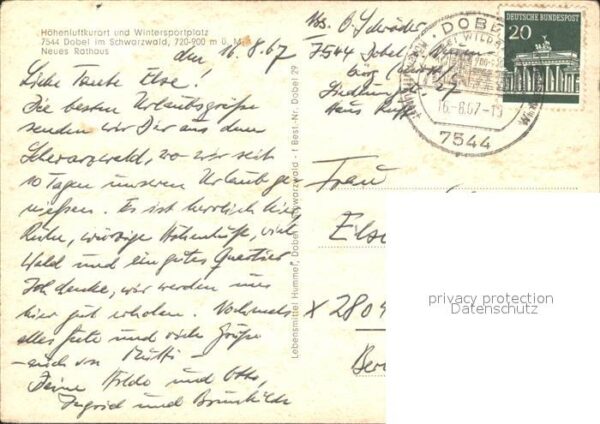 Höhenluftkurort und Wintersportplatz
7544 Dobel im Schwarzwald, 720-900 m ü. M.
Neues Rathaus
den 16.8.67
Liebe Tante Else!
Die besten Urlaubsgrüße
senden wir Dir aus dem
Schwarzwald, wo wir seit
10 Tagen unseren Urlaub ge-
nießen. Es ist herrlich hier,
Ruhe, würzige Höhenluft, viel
Wald und ein gutes Quartier
Ich denke, wir werden uns
hier gut erholen. Nochmals
alles Gute und viele Grüße
- auch von Mutti -
Deine Hilde und Otto,
Ingrid und Brunhilde
Lebensmittel Hummel, Dobel Schwarzwald - Best.-Nr. Dobel 29
Abs. O. Schröder
7544 Dobel
Haus
DOBEL
16.-8.67-19
7544
DEUTSCHE BUNDESPOST
20
Frau
Else
X 2804
Ber
privacy protection
Datenschutz